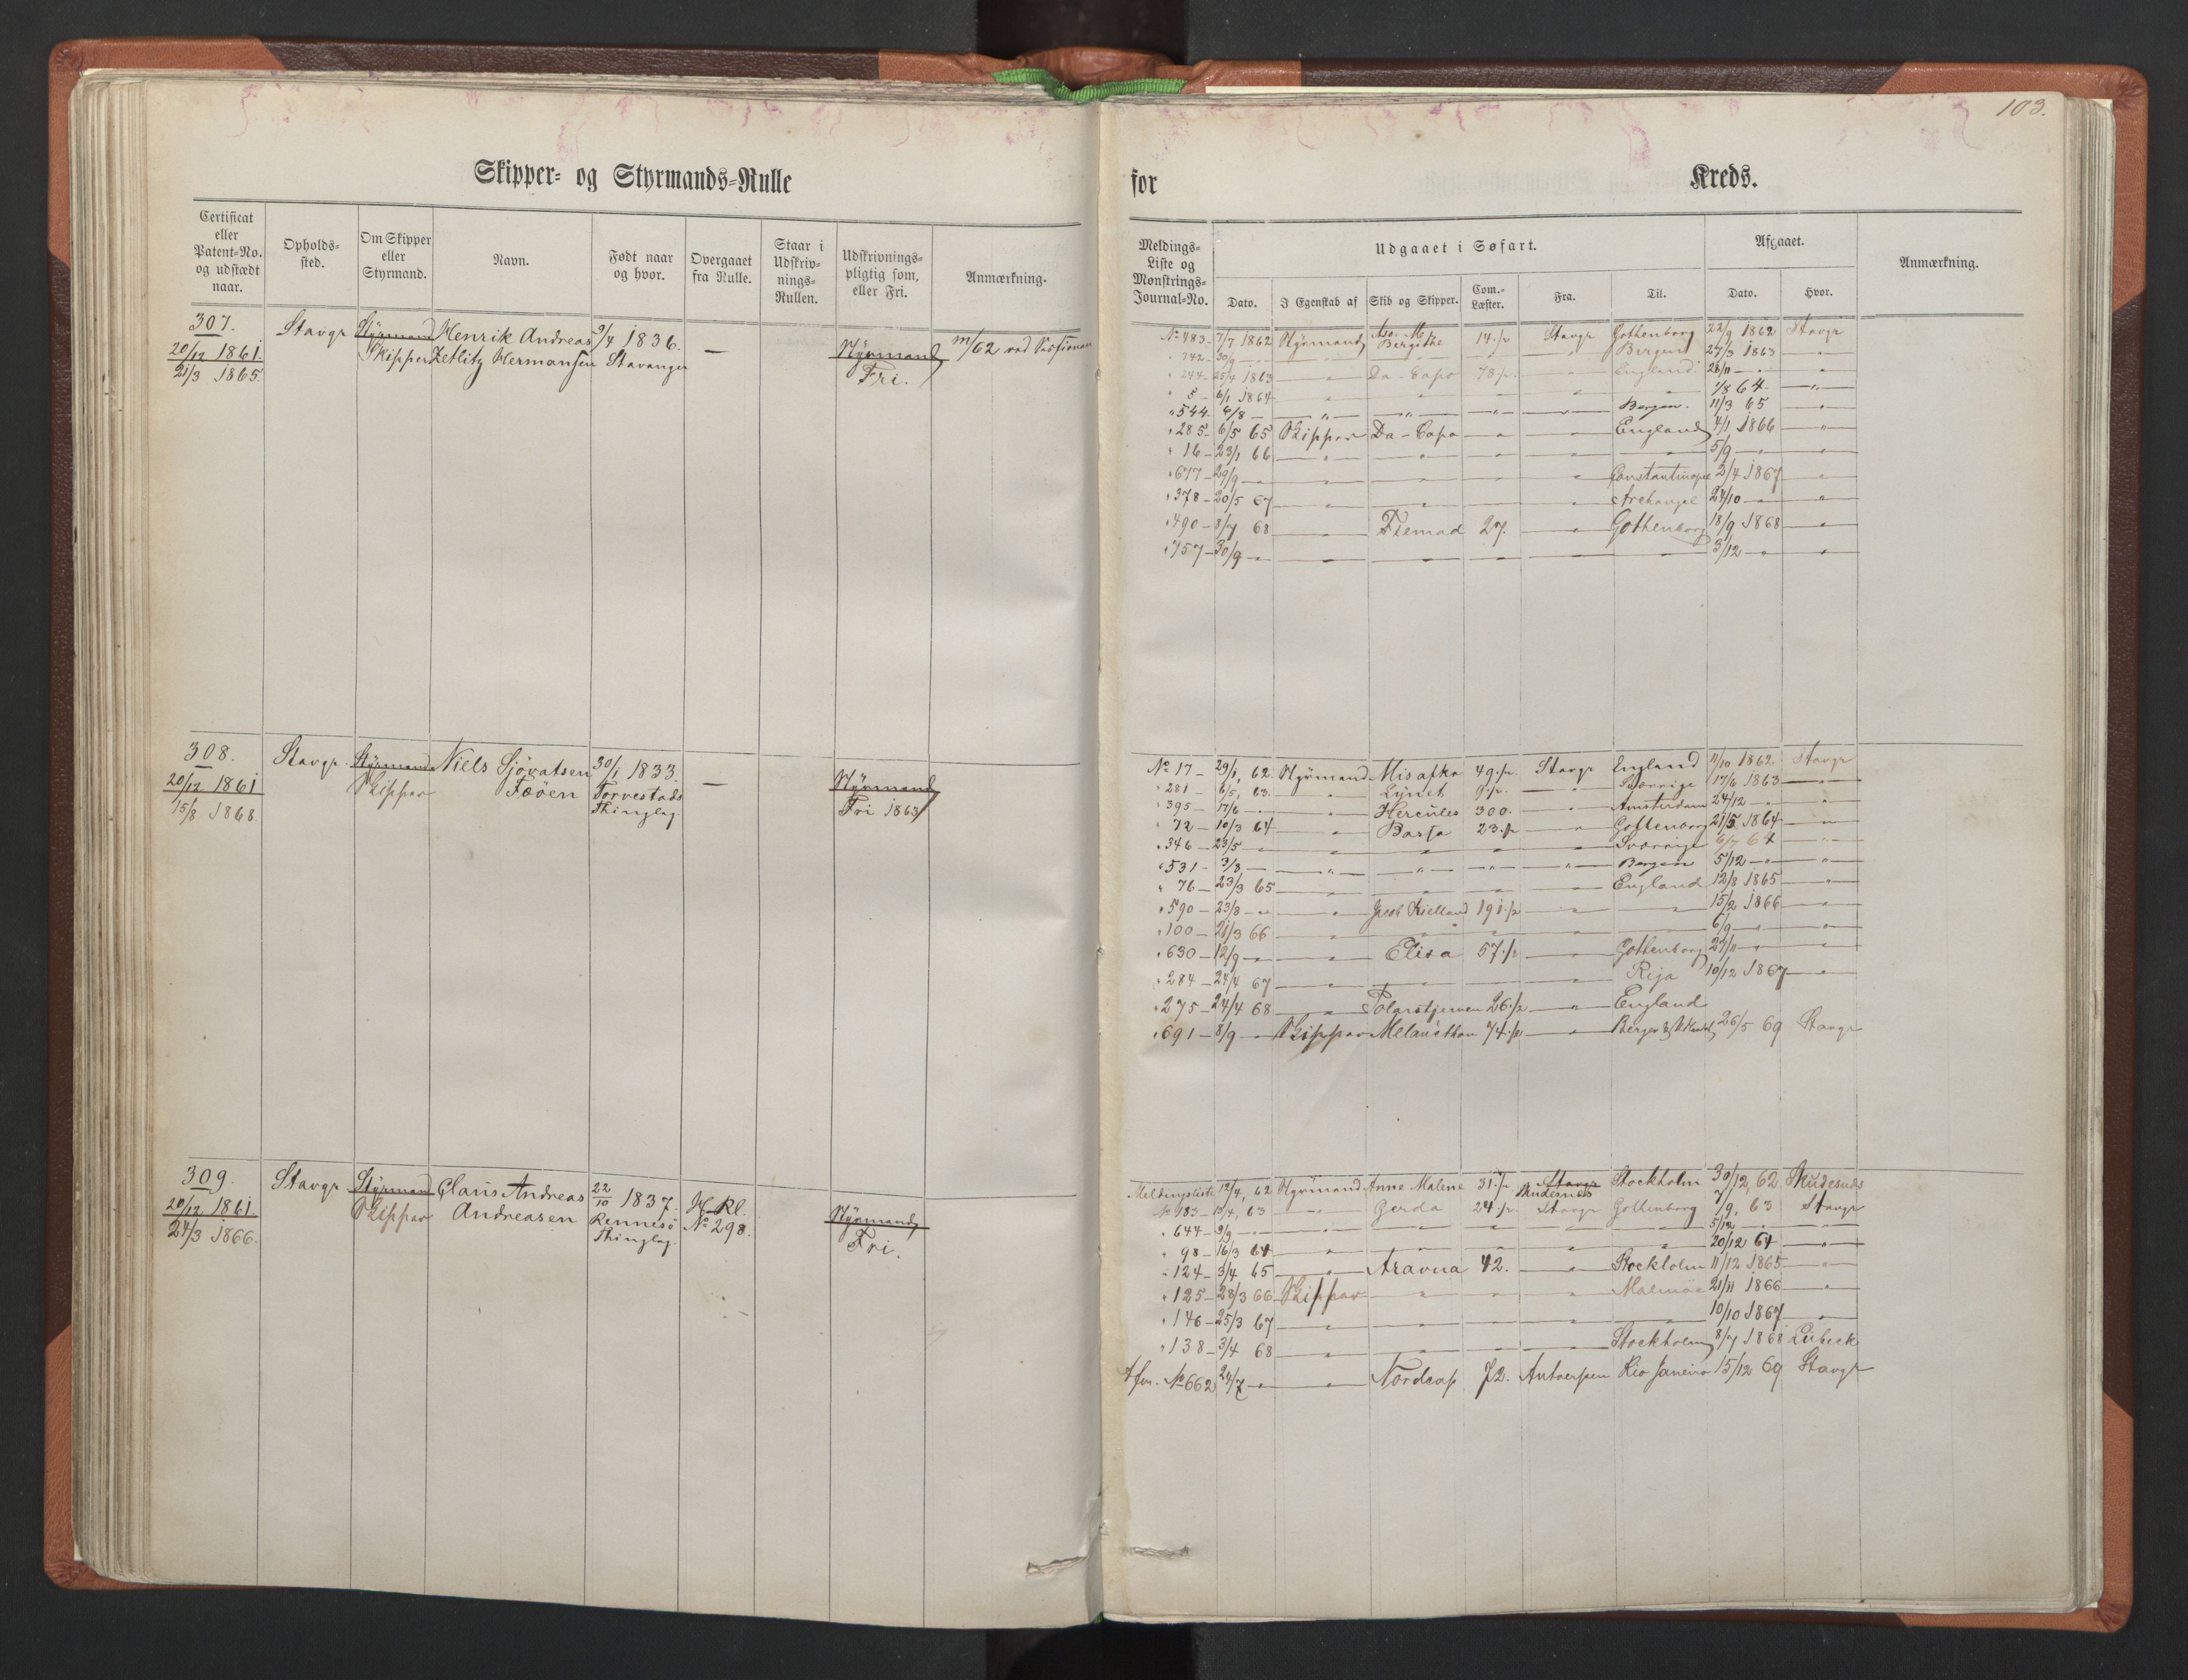 103.
Skipper- og Styrmands-Rulle
for Kreds.
Certificat eller Patent-No. og udstædt naar.
Opholds-sted.
Om Skipper eller Styrmand.
Navn.
Født naar og hvor.
Overgaaet fra Rulle.
Staar i Udskriv-nings-Rullen.
Udskrivnings-pligtig som, eller Fri.
Anmærkning.
Meldings-Liste og Mønstrings-Journal-No.
Udgaaet i Søfart.
Dato.
I Egenskab af
Skib og Skipper.
Com.-Læster.
Fra.
Til.
Afgaaet.
Dato.
Hvor.
Anmærkning.
307. Stavgr Styrmand Henrik Andreas 9/4 1836. —
20/12 1861. Skipper Zetlitz Hermansen Stavanger Styrmand
21/3 1865. Fri.
No 483- 7/7 1862 Styrmand Bergithe 14 Stavgr Gothenborg 22/9 1862 Stavgr
" 742- 30/9 — " Bergen 27/3 1863 "
" 244- 25/4 1863 — " Da-Capo 78 " England 28/11 — "
" 5 - 6/1 1864 " 1/8 64 — "
" 544- 6/8 — " — " — " Bergen. 11/3 65 "
" 285- 6/5 65 Skipper Da-Capo " England 4/1 1866 "
" 16 - 23/1 66 " 5/9 — "
" 677- 29/9 — " Constantinopel 2/4 1867 "
" 378- 20/5 67 " Archangel 24/10 — "
" 490- 8/7 68 " Fremad 27. " Gothenborg 18/9 1868 "
" 757- 30/9 — " 3/12 — "
308. Stavgr. Styrmand Niels Sjövatsen 30/1 1833. —
20/12 1861 Skipper Föven Torvestads Styrmand
15/8 1868. Thinglag. Fri 1863
No 17 - 29/1, 62. Styrmand 49 Stavgr England 11/10 1862 Stavgr
" 281 - 6/5, 63. " Lynet 9 " Sverrige 17/6 1863 "
" 395 - 17/6 — " Hercules 300. " Amsterdam 24/12 — "
" 72 - 10/3 64 " 23 " Gottenborg 21/5 1864 "
" 346 - 23/5 — " Sverrige 6/7 64 "
" 531 - 3/8 — " Bergen 5/12 — "
" 76 - 23/3 65 " England 12/8 1865 "
" 590 - 23/8 — " Jacob Kielland 191 " 15/2 1866 "
" 100 - 21/3 66 " 6/9 — "
" 630 - 12/9 — " Elisa 57 " Gothenborg 27/11 — "
" 284 - 24/4 67 " Riga 10/12 1867 "
" 275 - 24/4 68 " Polarstjernen 26 " England
" 691 - 8/9 — Skipper Melancthon 74 " Bergen 26/5 69 Stavgr
309. Stavgr Styrmand Claus Andreas 22/10 1837.
20/12 1861. Skipper Andreasen Rennesö No 298. Styrmand
24/3 1866. Thinglag. Fri.
Meldingsliste 12/4, 62 Styrmand Anne Malene 31 Stavgr Skudesnes Stockholm 30/12, 62 Skudesnes
No 183 - 13/4, 63 " Gerda 24 Stavgr Gothenborg 7/9, 63 Stavgr
" 644 - 9/9 — " 5/12 — "
" 98 - 16/3 64 " 20/12 64 "
" 124 - 3/4 65 " 42. " Stockholm 11/12 1865 "
" 125 - 28/3 66 Skipper " Malmøe 21/11 1866 "
" 146 - 25/3 67 " 10/10 1867 "
" 138 - 3/4 68 " Stockholm 8/7 1868 Lübeck
No 662 24/7 — " Nordcap 72. Antwerpen Rio Janeiro 15/12 69 Stavgr